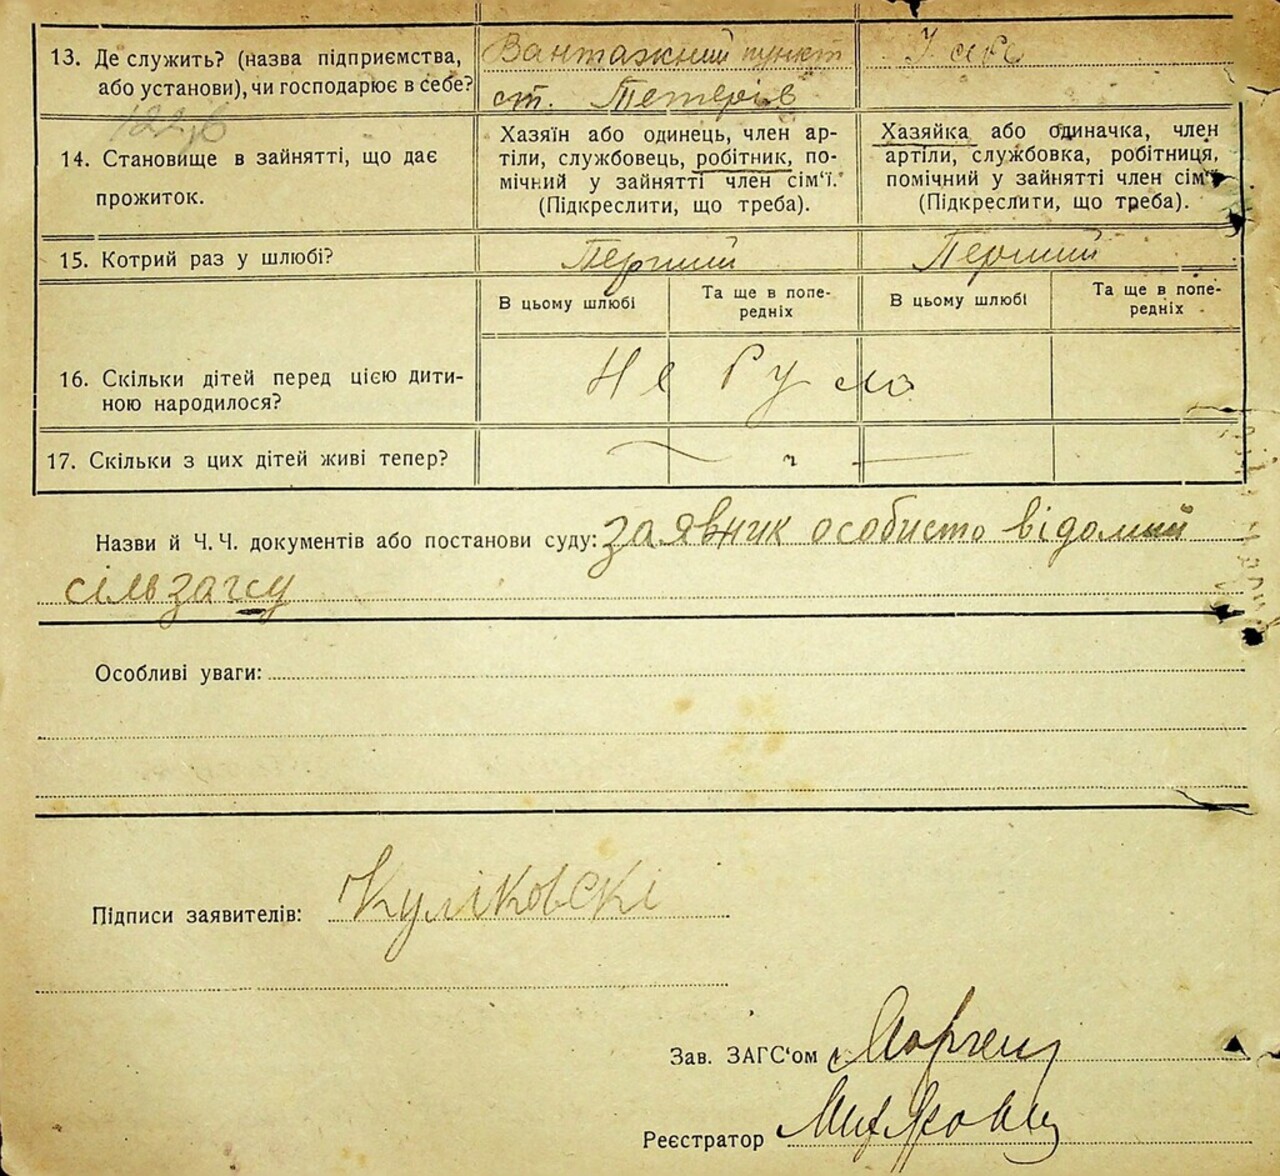 13. Де служить? (назва підприємства, Вантажний пункт У себе
або установи), чи господарює в себе? ст. Тетерів
122
14. Становище в зайнятті, що дає прожиток.
Хазяїн або одинець, член ар-
тіли, службовець, робітник, по-
мічний у зайнятті член сім'ї.
(Підкреслити, що треба).
Хазяйка або одиначка, член
артіли, службовка, робітниця,
помічний у зайнятті член сім'ї
(Підкреслити, що треба).
15. Котрий раз у шлюбі? Перший Перший
В цьому шлюбі
Та ще в попе-
редніх
В цьому шлюбі
Та ще в попе-
редніх
16. Скільки дітей перед цією дити-
ною народилося?
Не було
17. Скільки з цих дітей живі тепер?
Назви й Ч. Ч. документів або постанови суду: заявник особисто відомий
сільзагсу
Особливі уваги:
Підписи заявителів: Куліковскі
Зав. ЗАГС'ом
Реєстратор